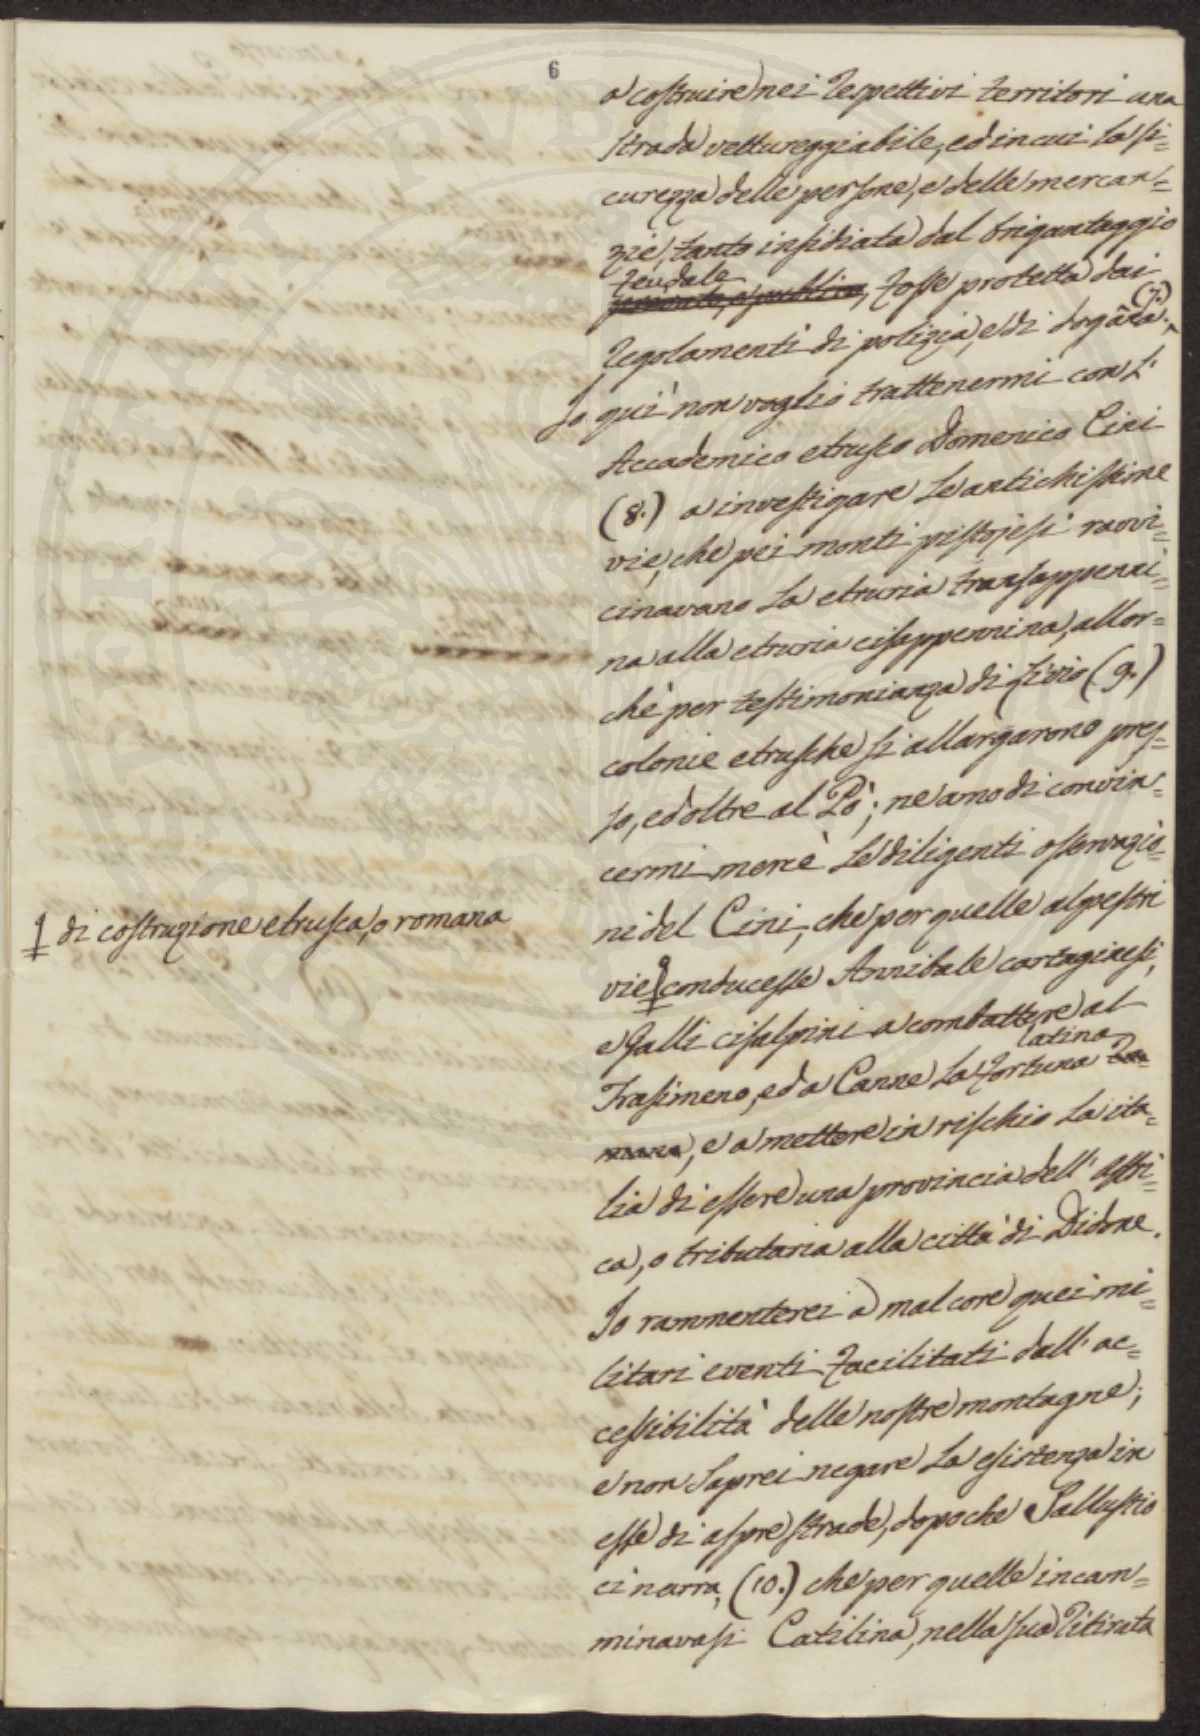 6
a costruire nei respettivi territori una
strada vettureggiabile, ed in cui la si=
curezza delle persone, e delle mercan=
zie, tanto insidiata dal brigantaggio
feudale
, fosse protetta dai
(7.)
regolamenti di polizia, e di dogana.
Io qui non voglio trattenermi con l'
Accademico etrusco Domenico Cini
(8.) a investigare le antichissime
vie, che pei monti pistojesi ravvi=
cinavano la etruria transappenni=
na alla etruria cisappennina, allor=
chè per testimonianza di Livio (9.)
colonie etrusche si allargarono pres=
so, ed oltre al Pò; ne amo di convin=
cermi mercè le diligenti osservazio=
ni del Cini, che per quelle alpestri
di costruzione etrusca, o romana
vie conducesse Annibale cartaginesi,
e galli cisalpini a combattere al
latina
Trasimeno, ed a Canne la fortuna ro=
mana, e a mettere in rischio la ita=
lia di essere una provincia dell'Affri=
ca, o tributaria alla città di Didone.
Io rammenterei a mal core quei mi=
litari eventi facilitati dall'ac=
cessibilità delle nostre montagne;
e non saprei negare la esistenza in
esse di aspre strade, dopoche Sallustio
ci narra, (10.) che per quelle incam=
minavasi Catilina, nella sua ritirata